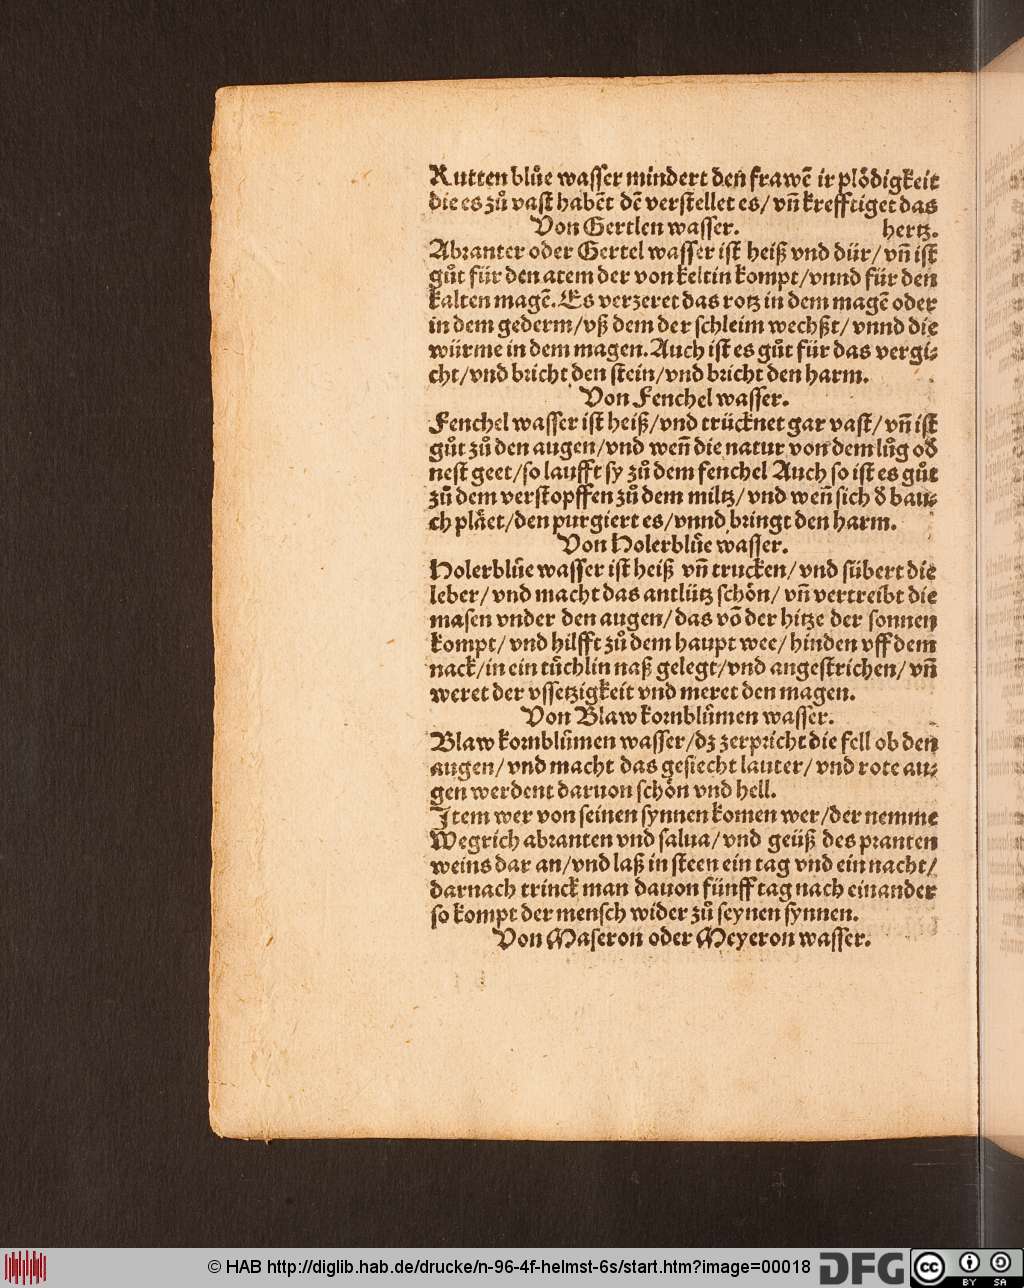 Kutten blůe wasser mindert den frawē ir plödigkeit
die es zů vast habēt dē verstellet es/ vñ krefftiget das
Von Gertlen wasser. hertz.
Abranter oder Gertel wasser ist heiß vnd dür/ vñ ist
gůt für den atem der von keltin kompt/vnnd für den
kalten magē. Es verzeret das rotz in dem magē oder
in dem gederm/vß dem der schleim wechßt/ vnnd die
würme in dem magen. Auch ist es gůt für das vergi⸗
cht/vnd bricht den stein/vnd bricht den harm.
Von Fenchel wasser.
Fenchel wasser ist heiß/vnd trücknet gar vast/ vñ ist
gůt zů den augen/vnd weñ die natur von dem lůg od̄
nest geet/so laufft sy zů dem fenchel Auch so ist es gůt
zů dem verstopffen zů dem miltz/ vnd weñ sich d̄ bau⸗
ch plået/den purgiert es/vnnd bringt den harm.
Von Holerblůe wasser.
Holerblůe wasser ist heiß vñ trucken/ vnd sübert die
leber/ vnd macht das antlütz schön/ vñ vertreibt die
masen vnder den augen/das vō der hitze der sonnen
kompt/ vnd hilfft zů dem haupt wee/ hinden vff dem
nack/in ein tůchlin naß gelegt/vnd angestrichen/ vñ
weret der vssetzigkeit vnd meret den magen.
Von Blaw kornblůmen wasser.
Blaw kornblůmen wasser/dz zerpricht die fell ob den
augen/ vnd macht das gesiecht lauter/ vnd rote au⸗
gen werdent daruon schön vnd hell.
Item wer von seinen synnen komen wer/der nemme
Wegrich abranten vnd salua/ vnd geüß des pranten
weins dar an/vnd laß in steen ein tag vnd ein nacht/
darnach trinck man dauon fünff tag nach einander
so kompt der mensch wider zů seynen synnen.
Von Maseron oder Meyeron wasser.
© HAB http://diglib.hab.de/drucke/n-96-4f-helmst-6s/start.htm?image=00018
DFG
cc BY SA